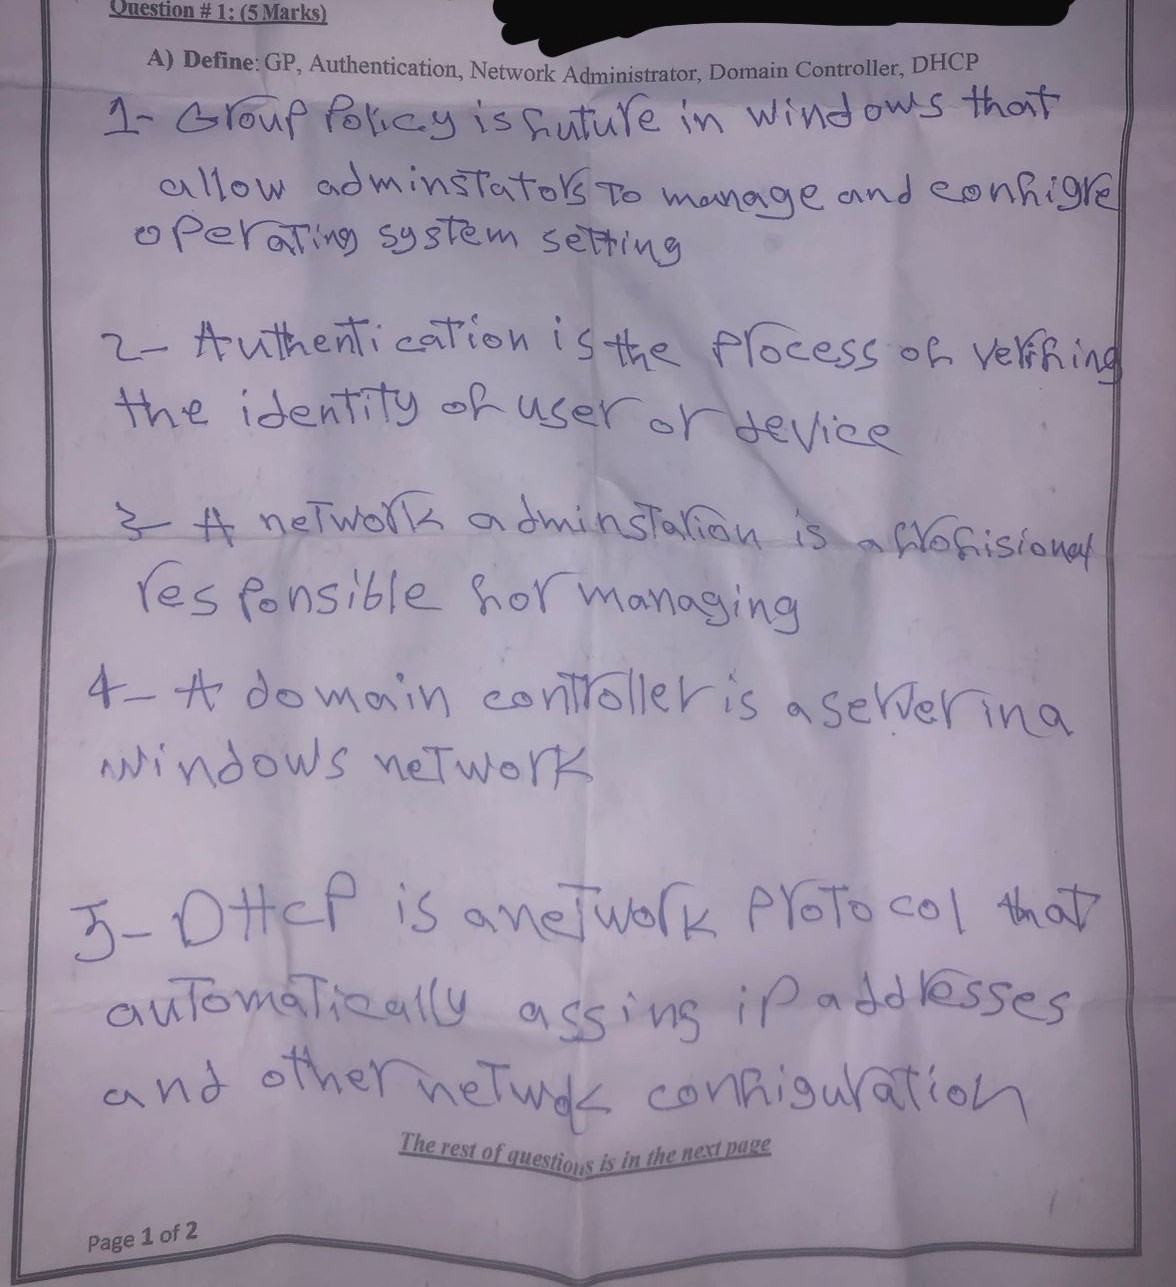 Question # 1: (5 Marks)
A) Define: GP, Authentication, Network Administrator, Domain Controller, DHCP
1- Group Policy is future in windows that
allow adminstators To manage and configre
operating system setting
2- Authentication is the process of verifing
the identity of user or device
3- A network adminstation is a profisional
responsible for managing
4- A domain controller is a server in a
windows network
5- DHCP is a network protocol that
automatically assing ip addresses
and other netwok configuration
The rest of questions is in the next page
Page 1 of 2